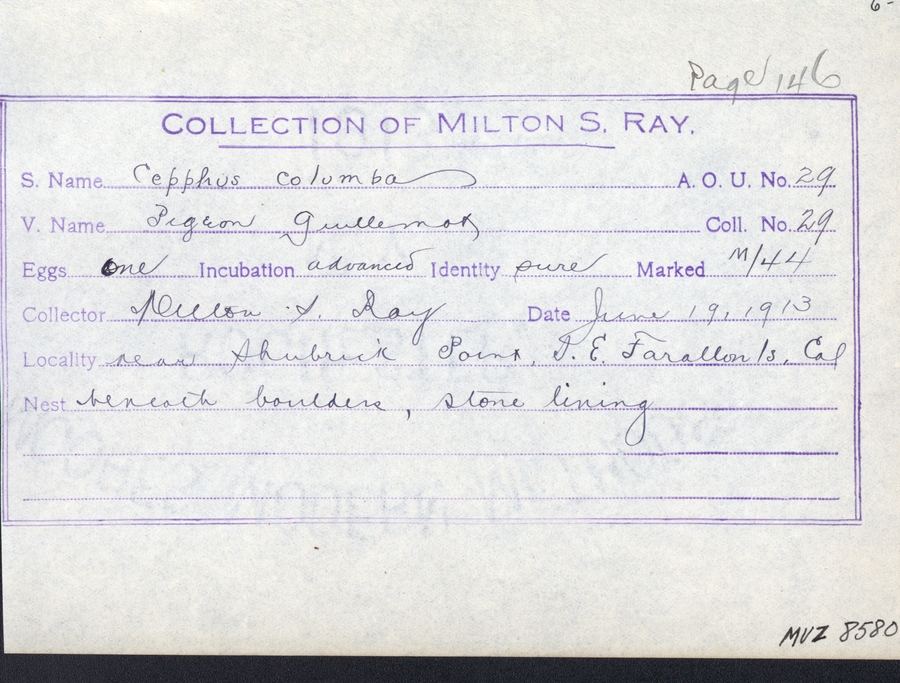 6-
Page 146
COLLECTION OF MILTON S. RAY.
S. Name Cepphus columba A. O. U. No. 29
V. Name Pigeon Guillemot Coll. No. 29
Eggs one Incubation advanced Identity sure Marked M/44
Collector Milton S. Ray Date June 19, 1913
Locality near Shubrick Point, S. E. Farallon Is. Cal
Nest beneath boulders, stone lining
MVZ 8580